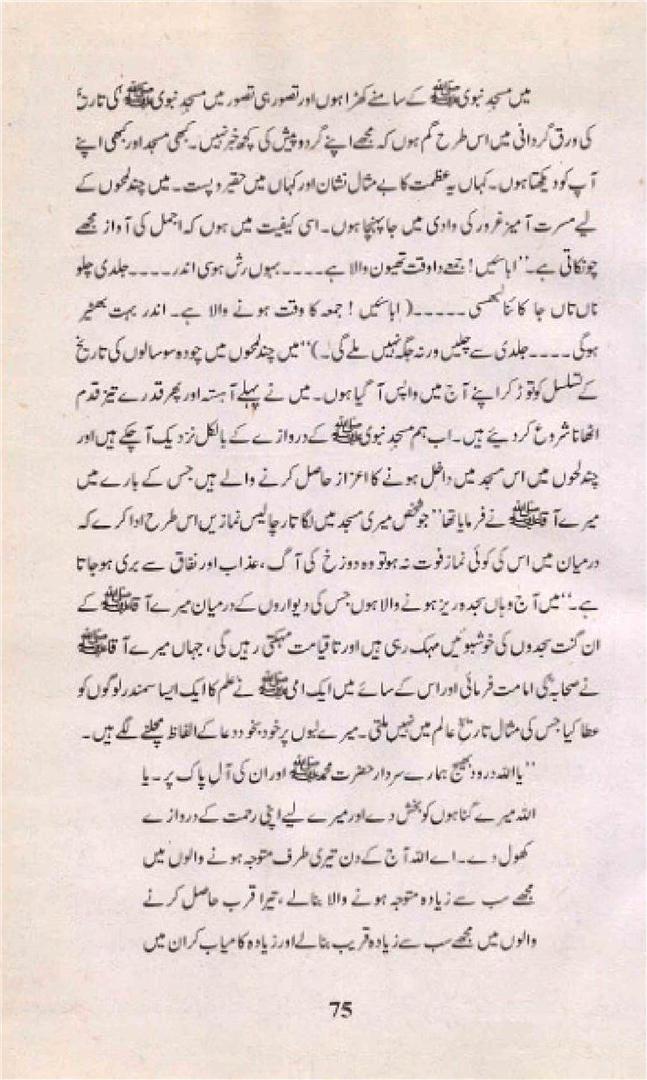 میں مسجد نبوی ﷺ کے سامنے کھڑا ہوں اور تصور ہی تصور میں مسجدِ نبوی ﷺ کی تاریخ
کی ورق گردانی میں اس طرح گم ہوں کہ مجھے اپنے گردو پیش کی کچھ خبر نہیں۔ کبھی مسجد اور کبھی اپنے
آپ کو دیکھتا ہوں۔ کہاں یہ عظمت کا بے مثال نشان اور کہاں میں حقیر و پست۔ میں چند لمحوں کے
لیے مسرت آمیز غرور کی وادی میں جا پہنچا ہوں۔ اسی کیفیت میں ہوں کہ اجمل کی آواز مجھے
چونکاتی ہے۔ ’’ابا سئیں! جمعے دا وقت تھیون والا ہے۔۔۔۔ بہوں رش ہوسی اندر۔۔۔۔ جلدی چلو
ناں تاں جا کائنا لبھسی ۔۔۔۔۔ (ابا سئیں! جمعہ کا وقت ہونے والا ہے۔ اندر بہت بھیڑ
ہوگی۔۔۔۔ جلدی سے چلیں ورنہ جگہ نہیں ملے گی۔)‘‘ میں چند لمحوں میں چودہ سو سالوں کی تاریخ
کے تسلسل کو توڑ کر اپنے آج میں واپس آ گیا ہوں۔ میں نے پہلے آہستہ اور پھر قدرے تیز قدم
اٹھانا شروع کر دیئے ہیں۔ اب ہم مسجدِ نبوی ﷺ کے دروازے کے بالکل نزدیک آ چکے ہیں اور
چند لمحوں میں اس مسجد میں داخل ہونے کا اعزاز حاصل کرنے والے ہیں جس کے بارے میں
میرے آقا ﷺ نے فرمایا تھا ’’جو شخص میری مسجد میں لگاتار چالیس نمازیں اس طرح ادا کرے کہ
درمیان میں اس کی کوئی نماز فوت نہ ہو تو وہ دوزخ کی آگ، عذاب اور نفاق سے بری ہو جاتا
ہے۔‘‘ میں آج وہاں سجدہ ریز ہونے والا ہوں جس کی دیواروں کے درمیان میرے آقا ﷺ کے
ان گنت سجدوں کی خوشبوئیں مہک رہی ہیں اور تا قیامت مہکتی رہیں گی، جہاں میرے آقا ﷺ
نے صحابہؓ کی امامت فرمائی اور اس کے سائے میں ایک امی ﷺ نے علم کا ایک ایسا سمندر لوگوں کو
عطا کیا جس کی مثال تاریخِ عالم میں نہیں ملتی۔ میرے لبوں پر خود بخود دعا کے الفاظ مچلنے لگے ہیں۔
’’یا اللہ درود بھیج ہمارے سردار حضرت محمد ﷺ اور ان کی آلِ پاک پر۔ یا
اللہ میرے گناہوں کو بخش دے اور میرے لیے اپنی رحمت کے دروازے
کھول دے۔ اے اللہ آج کے دن تیری طرف متوجہ ہونے والوں میں
مجھے سب سے زیادہ متوجہ ہونے والا بنالے، تیرا قرب حاصل کرنے
والوں میں مجھے سب سے زیادہ قریب بنالے اور زیادہ کامیاب کر ان میں
75